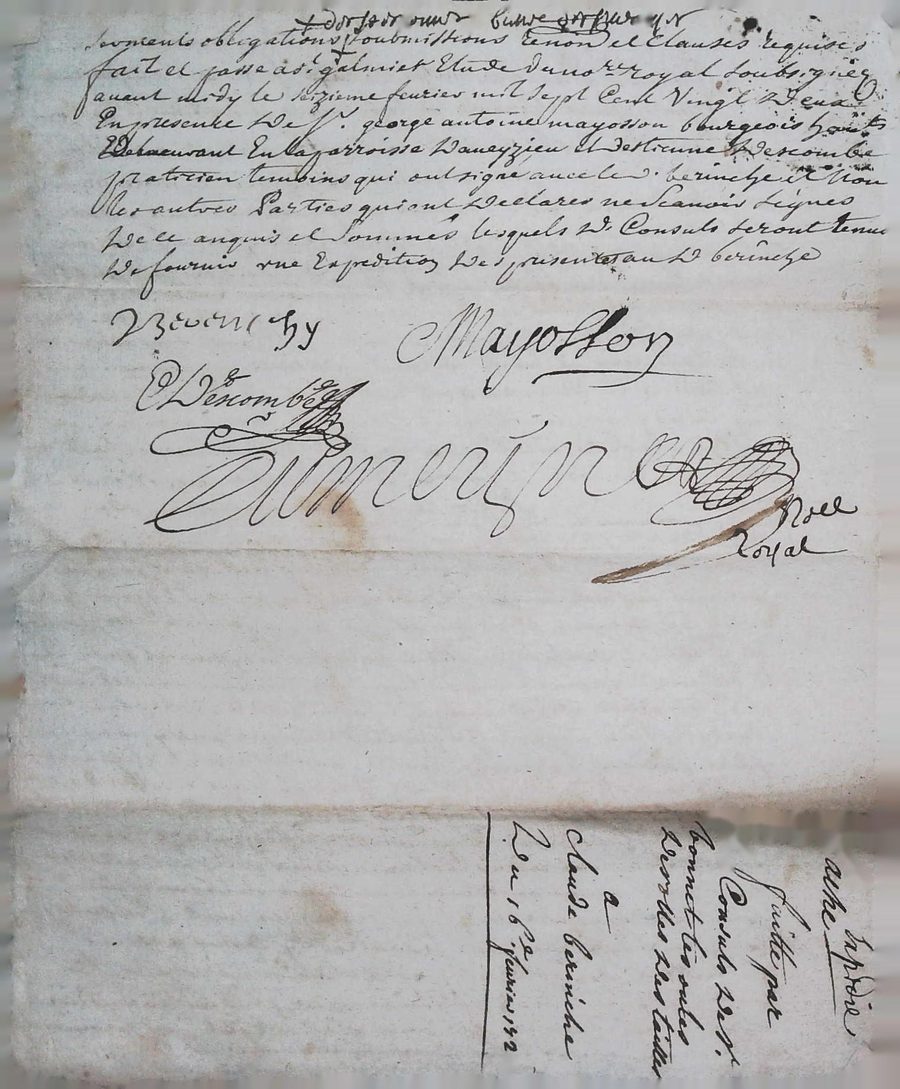 serments obligations soubmissions renon et Clauses requises
fait et passé a St galmier Etude du nore royal soubsigné
avant midy le seizieme feuvrier mil sept Cent Vingt Deux
En presence De Sr george antoine mayosson bourgeois
Demeurant En la parroisse Daveyzieu et Destienne Descombe
praticien temoins qui ont signé avec led. berinche Et Non
les autres Parties qui ont Declarés ne Scavoir signer
De ce anquis et sommés lesquels Ds Consuls seront tenus
De fournir une Expedition Des presentes au D berinche
Mayosson
EDescombes
Noel
Royal
faitte par
Consuls De St
bonnet les oules
Des rolles Des tailles
a
claude berinche
Du 16e feuvrier 172